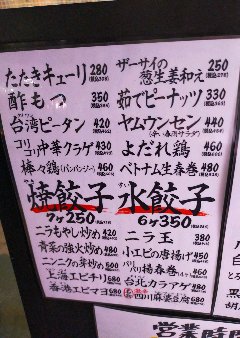 たたきキューリ 280
酢もつ 350
台湾ピータン 420
コリコリ中華クラゲ 430
棒々鶏(バンバンジー) 460
ザーサイの葱生姜和え 250
茹でピーナッツ 330
ヤムウンセン 440
よだれ鶏 460
ベトナム生春巻 480
焼餃子
7ケ250
水餃子
6ケ350
ニラもやし炒め 420
青菜の強火炒め 480
ニンニクの芽炒め 500
上海エビチリ 680
香港エビマヨ 680
ニラ玉 480
小エビの唐揚げ 450
パリパリ揚春巻 460
台北カラアゲ 580
四川麻婆豆腐 680
営業時間